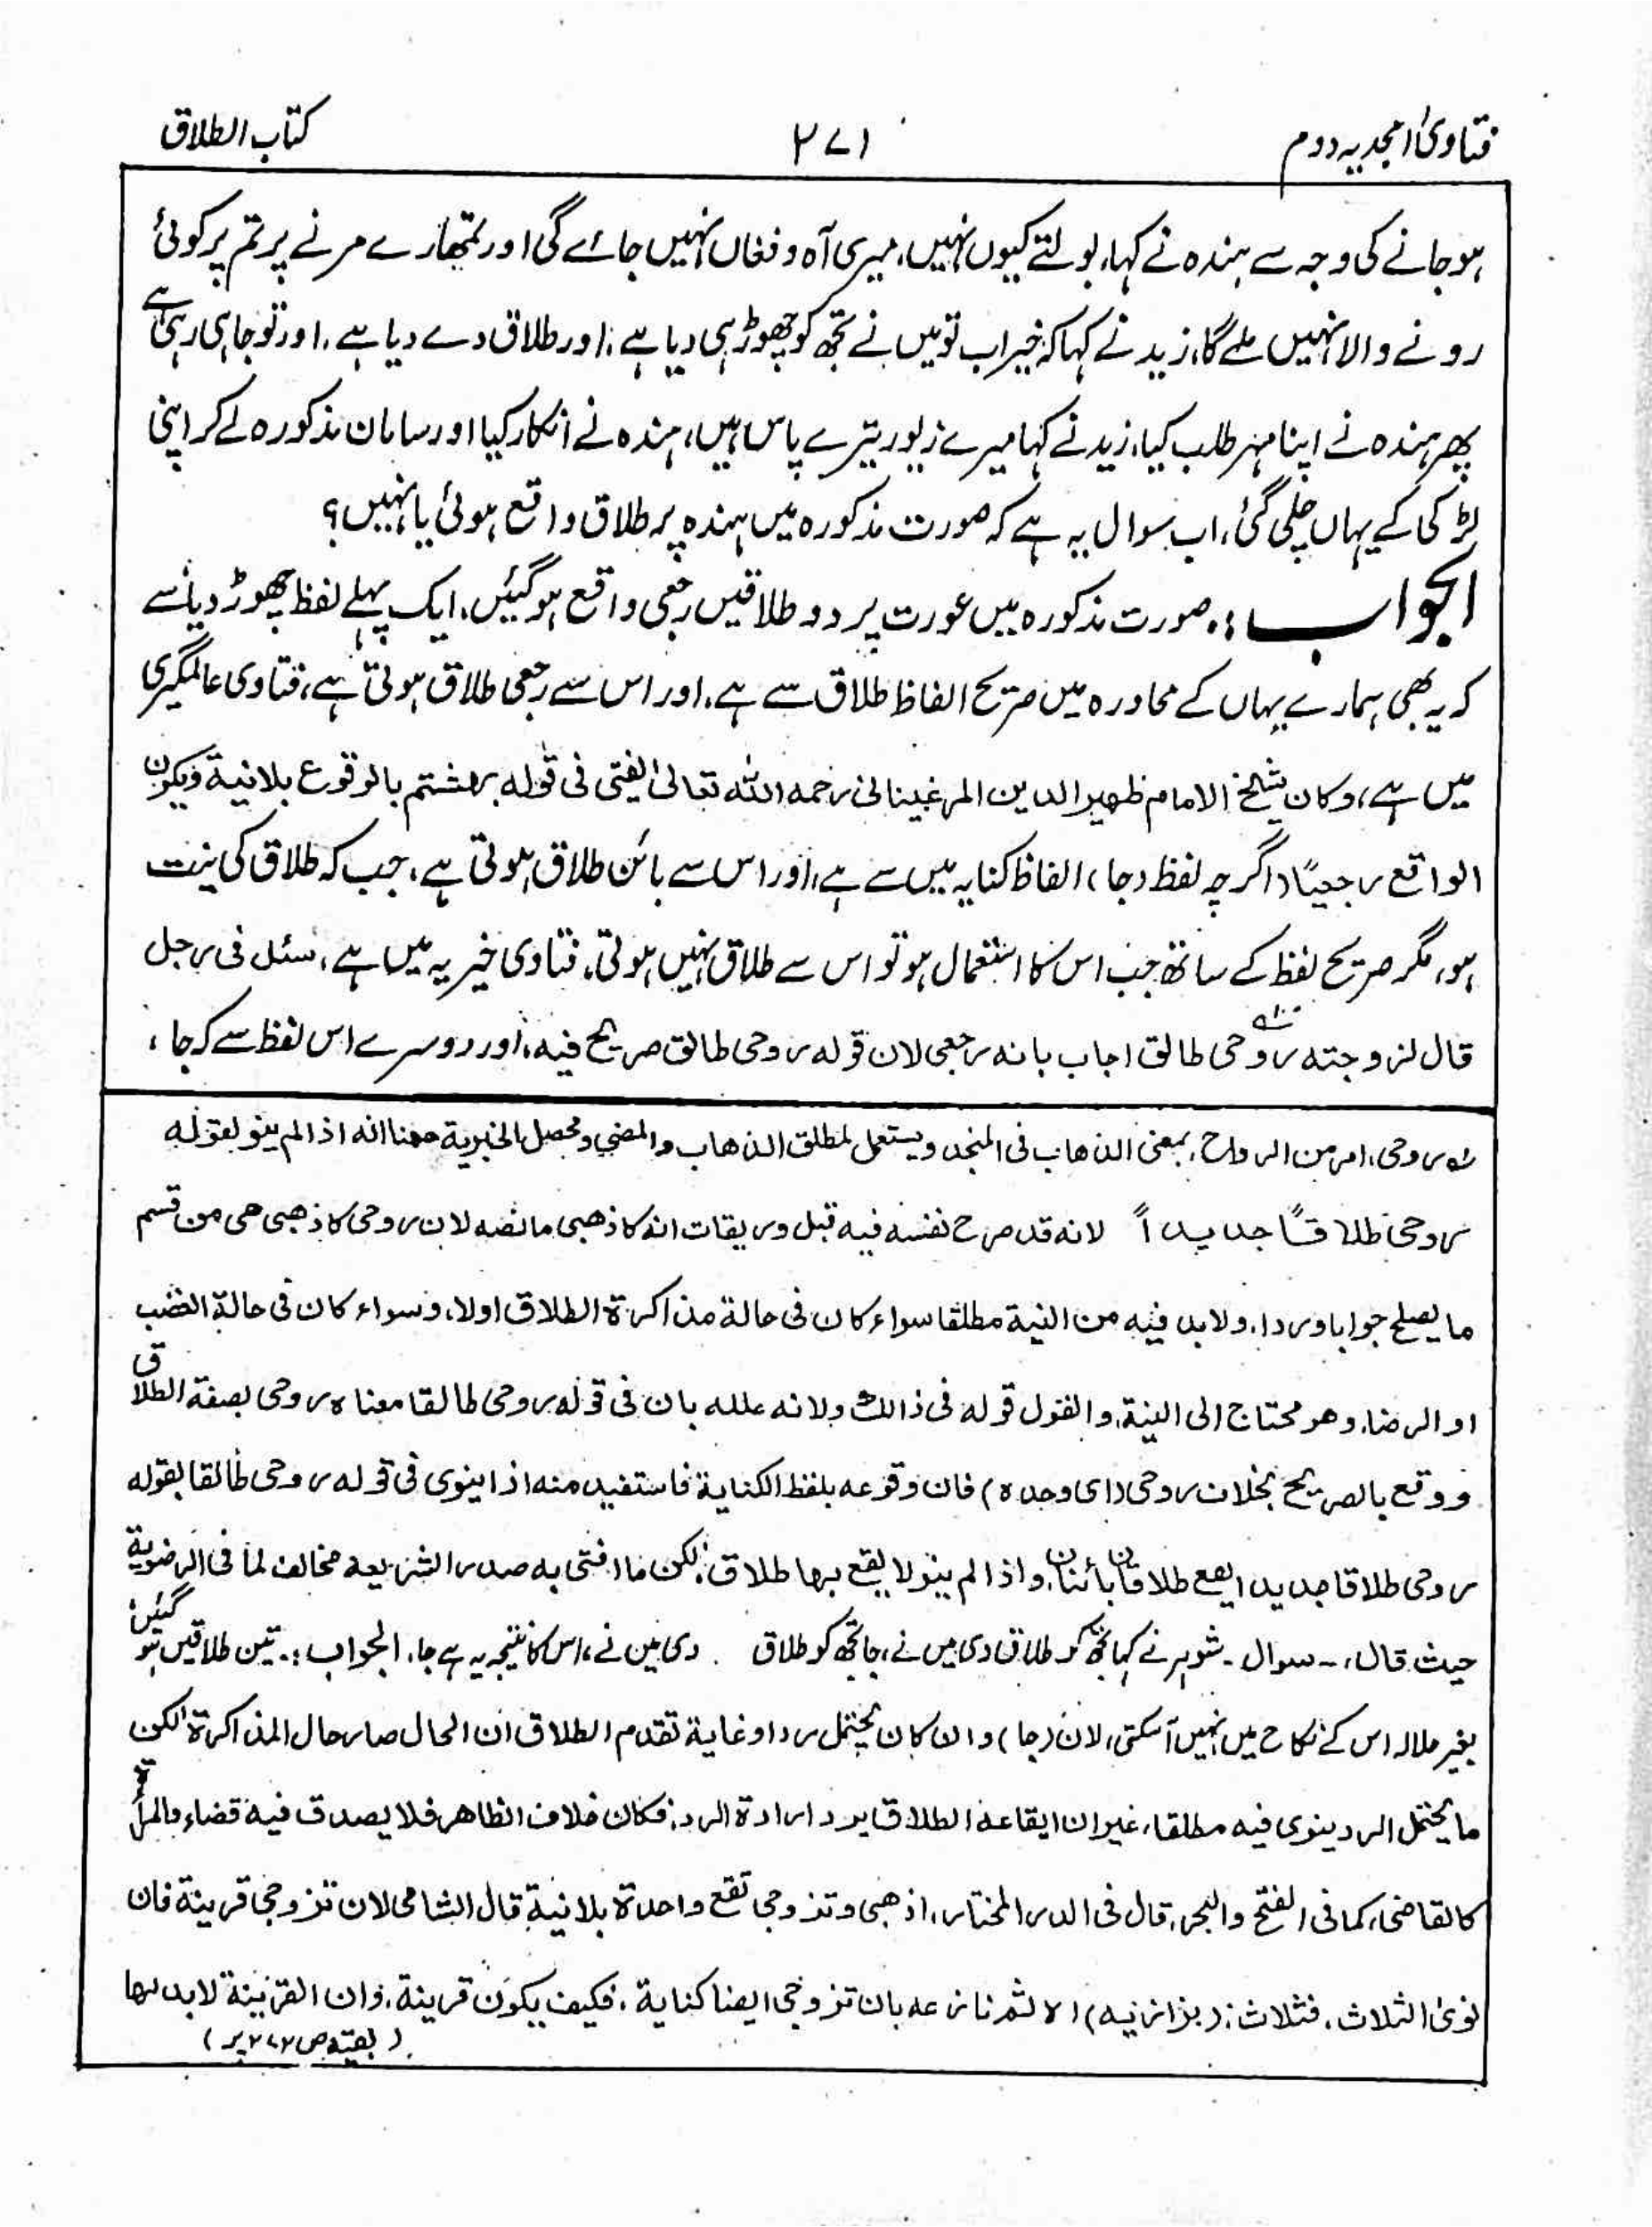 فتاویٰ امجدیہ دوم
۲۷۱
کتاب الطلاق
ہوجانے کی وجہ سے ہندہ نے کہا، بولتے کیوں نہیں، میری آہ و فغاں نہیں جائے گی اور تمھارے مرنے پر تم پر کوئی
رونے والا نہیں ملے گا، زید نے کہا کہ خیر اب تو میں نے تجھ کو چھوڑ ہی دیا ہے، اور طلاق دے دیا ہے، اور تو جا ہی رہی ہے
پھر ہندہ نے اپنا مہر طلب کیا، زید نے کہا میرے زیور تیرے پاس ہیں، ہندہ نے انکار کیا اور سامان مذکورہ لے کر اپنی
لڑکی کے یہاں چلی گئی، اب سوال یہ ہے کہ صورت مذکورہ میں ہندہ پر طلاق واقع ہوئی یا نہیں؟
الجواب :۔ صورت مذکورہ میں عورت پر دو طلاقیں رجعی واقع ہو گئیں، ایک پہلے لفظ چھوڑ دیا سے
کہ یہ بھی ہمارے یہاں کے محاورہ میں صریح الفاظ طلاق سے ہے، اور اس سے رجعی طلاق ہوتی ہے، فتاوی عالمگیری
میں ہے، وکان شیخ الامام ظہیر الدین المرغینانی رحمہ اللہ تعالیٰ یفتی فی قولہ بہشتم بالوقوع بلانیة ویکون
الواقع رجعیًا (اگرچہ لفظ (جا) الفاظ کنایہ میں سے ہے، اور اس سے بائن طلاق ہوتی ہے، جب کہ طلاق کی نیت
ہو، مگر صریح لفظ کے ساتھ جب اس کا استعمال ہو تو اس سے طلاق نہیں ہوتی، فتاوی خیریہ میں ہے، سئل فی رجل
قال لزوجتہ روحی طالق اجاب بانہ رجعی لان قولہ روحی طالق صریح فیہ، اور دوسرے اس لفظ سے کہ جا،
روحی، امر من الرواح، بمعنی الذھاب فی المنجد ویستعمل لمطلق الذھاب والمضی ومحصل الخیریة ھھنا انہ اذا لم ینو بقولہ
روحی طلاقًا جدیدًا لانہ قد صرح نفسہ فیہ قبل وریقات انہ کاذھبی مانصہ لان روحی کاذھبی ھی من قسم
ما یصلح جوابا وردا، ولابد فیہ من النیة مطلقا سواء کان فی حالة مذاکرة الطلاق اولا، وسواء کان فی حالة الغضب
او الرضا، وھو محتاج الی النیة، والقول قولہ فی ذالک ولانہ عللہ بان فی قولہ روحی طالقا معناہ روحی بصفة الطلاق
فوقع بالصریح بخلاف روحی (ای وحدہ) فان وقوعہ بلفظ الکنایة فاستفید منہ اذا ینوی فی قولہ روحی طالقا بقولہ
روحی طلاقا جدیدا یقع طلاقان بائنان، واذا لم ینو لا یقع بہا طلاق، لکن ما افتی بہ صدر الشریعہ مخالف لما فی الرضویة
حیث قال، ۔ سوال ۔ شوہر نے کہا تجھ کو طلاق دی میں نے، جا تجھ کو طلاق دی میں نے، اس کا نتیجہ یہ ہے جا، الجواب :۔ تین طلاقیں ہو گئیں
بغیر حلالہ اس کے نکاح میں نہیں آسکتی، لان (جا) وان کان یحتمل ردا وغایة تقدم الطلاق ان الحال صار حال المذاکرة لکن
ما یحتمل الرد ینوی فیہ مطلقا، غیر ان ایقاعہ الطلاق یرد ارادة الرد، فکان خلاف الظاھر فلا یصدق فیہ قضاء والمرأة
کالقاضی، کما فی الفتح والبحر، قال فی الدر المختار، اذھبی وتزوجی تقع واحدة بلانیة قال الشامی لان تزوجی قرینة فان
نوی الثلاث، فثلاث، (بزازیہ) الا ثم نازعہ بان تزوجی ایضا کنایة، فکیف یکون قرینة، وان القرینة لابد لہا
(بقیہ ص ۲۷۲ پر)